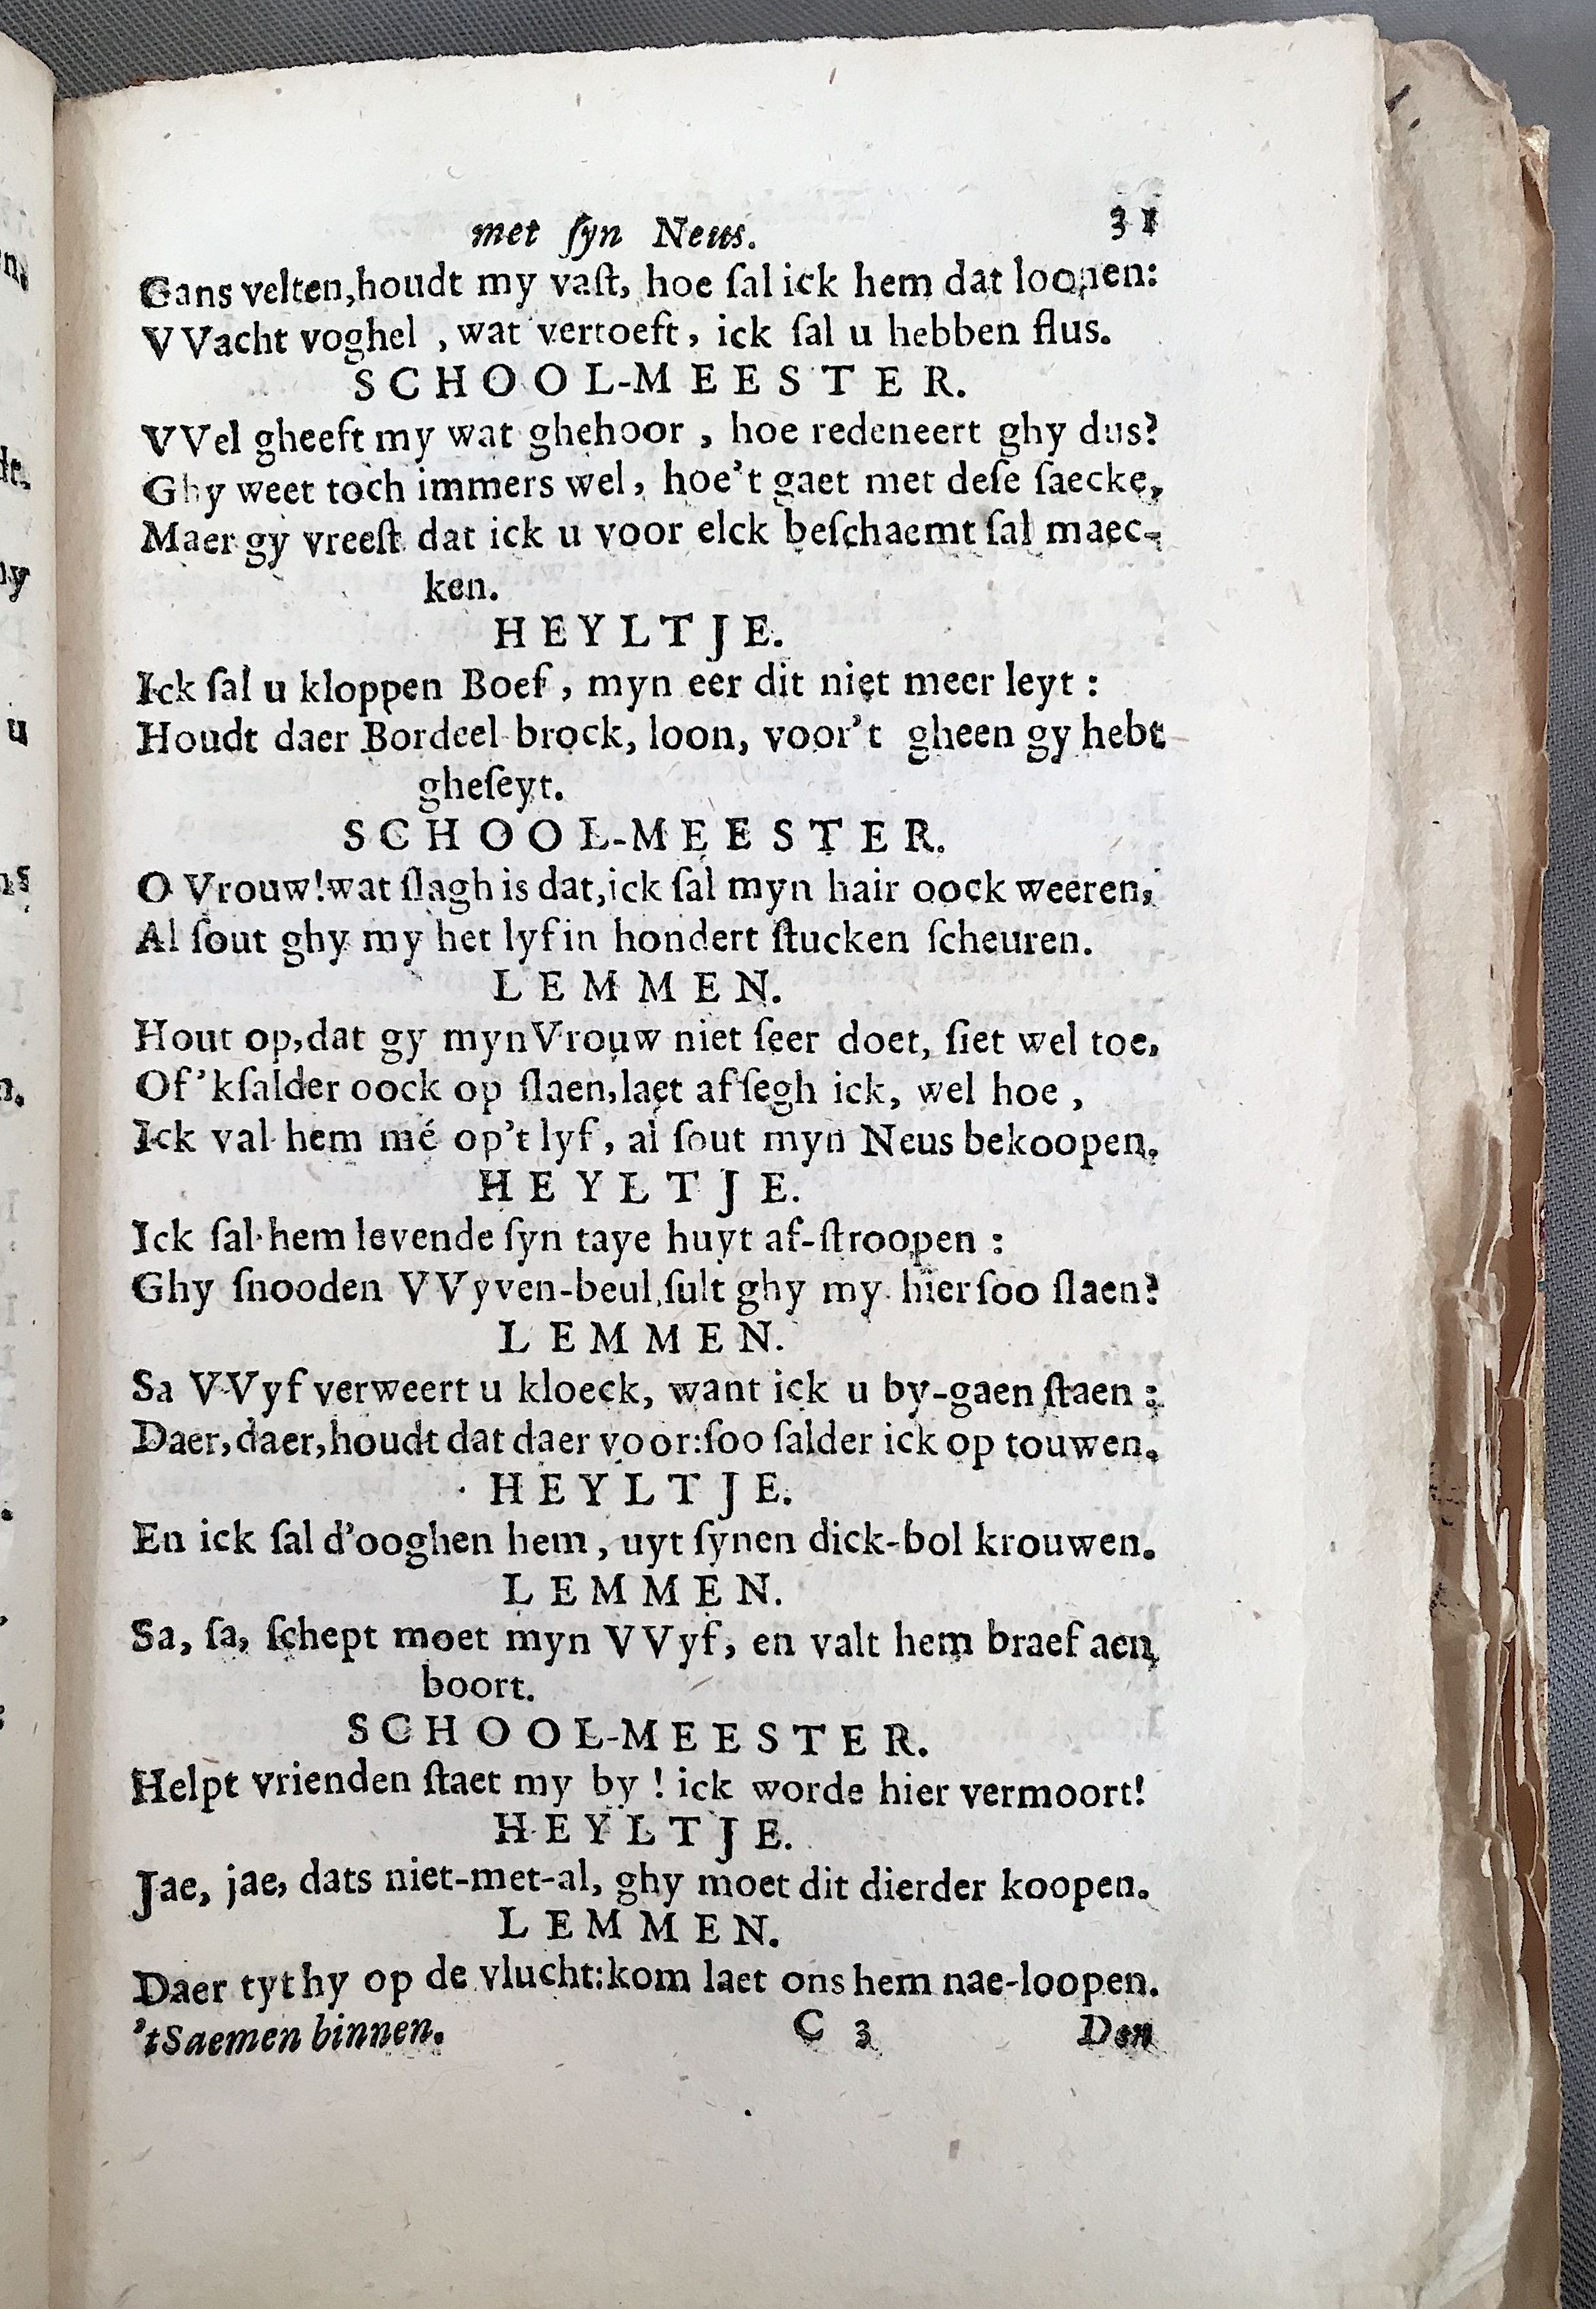 met ſyn Neus. 31
Gans velten,houdt my vaſt, hoe ſal ick hem dat loonen:
VVacht voghel , wat vertoeft, ick ſal u hebben flus.
SCHOOL-MEESTER.
VVel gheeft my wat ghehoor , hoe redeneert ghy dus?
Ghy weet toch immers wel, hoe't gaet met deſe ſaecke,
Maer gy vreeſt dat ick u voor elck beſchaemt ſal maec-
ken.
HEYLTJE.
Ick ſal u kloppen Boef , myn eer dit niet meer leyt :
Houdt daer Bordeel brock, loon, voor't gheen gy hebt
gheſeyt.
SCHOOL-MEESTER.
O Vrouw!wat ſlagh is dat,ick ſal myn hair oock weeren,
Al ſout ghy my het lyf in hondert ſtucken ſcheuren.
LEMMEN.
Hout op,dat gy myn Vrouw niet ſeer doet, ſiet wel toe.
Of 'kſalder oock op ſlaen,laet af ſegh ick, wel hoe ,
Ick val hem mé op't lyf , al ſout myn Neus bekoopen.
HEYLTJE.
Ick ſal hem levende ſyn taye huyt af-ſtroopen :
Ghy ſnooden VVyven-beul,ſult ghy my hier ſoo ſlaen?
LEMMEN.
Sa VVyf verweert u kloeck, want ick u by-gaen ſtaen :
Daer,daer,houdt dat daer voor:ſoo ſalder ick op touwen.
HEYLTJE.
En ick ſal d'ooghen hem , uyt ſynen dick-bol krouwen.
LEMMEN.
Sa, ſa, ſchept moet myn VVyf, en valt hem braef aen
boort.
SCHOOL-MEESTER.
Helpt vrienden ſtaet my by ! ick worde hier vermoort!
HEYLTJE.
Jae, jae, dats niet-met-al, ghy moet dit dierder koopen.
LEMMEN.
Daer tyt hy op de vlucht:kom laet ons hem nae-loopen.
'tSaemen binnen. C 3 Den